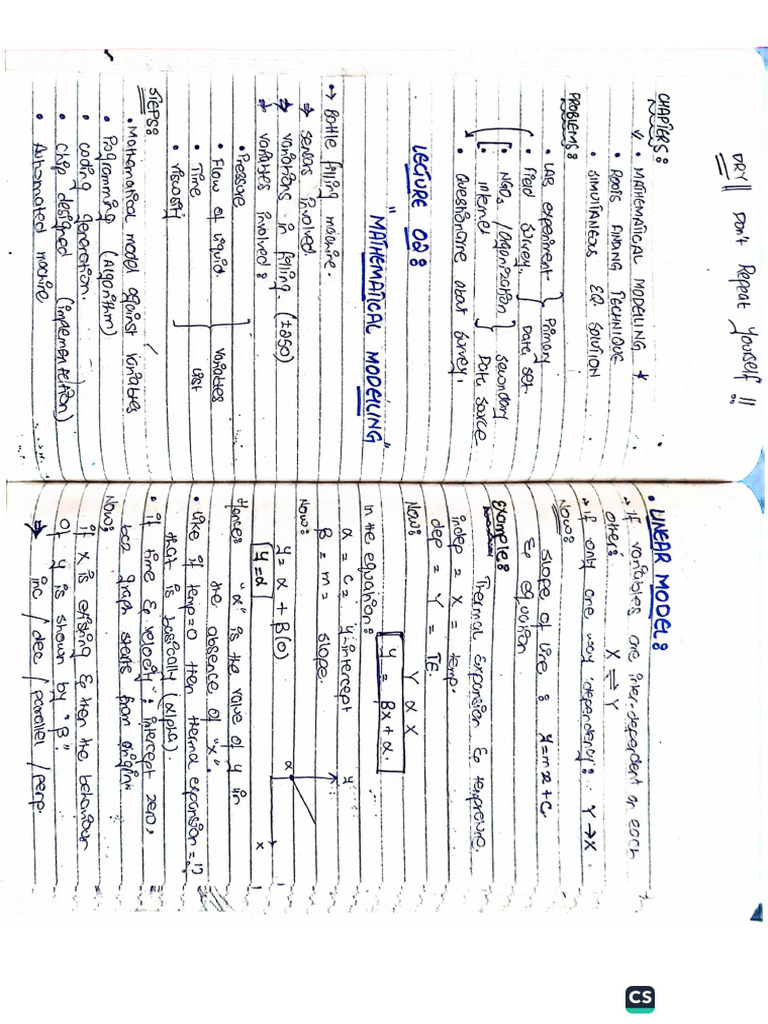 DRY || Don't Repeat Yourself !!
CHAPTERS:
• MATHEMATICAL MODELLING *
• ROOTS FINDING TECHNIQUE
• SIMULTANEOUS EQ SOLUTION
PROBLEMS:
• LAB experiment } Primary
• Field Survey. } Data set.
• NGOs / Organization } Secondary
• Internet } Data Source
• Questionaire about Survey.
LECTURE 02:
"MATHEMATICAL MODELLING"
→ Bottle filling machine.
→ sensors involved.
→ variations in filling. (±250)
→ variables involved:
• Pressure
• Flow of liquid } variables
• Time } List
• viscosity
STEPS:
• Mathematical model against variables
• Programming (Algorithm)
• Coding generation.
• Chip designed (implementation)
• Automated machine
• LINEAR MODEL:
→ if variables are inter-dependent on each
other: X ⇌ Y
→ if only one way dependency: Y → X
Now:
slope of line : y = mx + c.
& equation
Example:
Thermal Expansion & temprature.
indep = X = temp.
dep = Y = TE.
Now: Y α X
y = Bx + α.
in the equation:
α = c = y-intercept
B = m = slope.
Now:
y = α + B(0)
y = α
y
α
x
Hence: "α" is the value of y in
the absence of "x".
• Like if temp=0 then thermal expansion = ??
that is basically (alpha).
• if time & velocity: intercept zero,
bcz graph starts from origin.
Now:
if x is existing & then the behaviour
of y is shown by "B".
→ inc / dec / parallel / perp.
CS